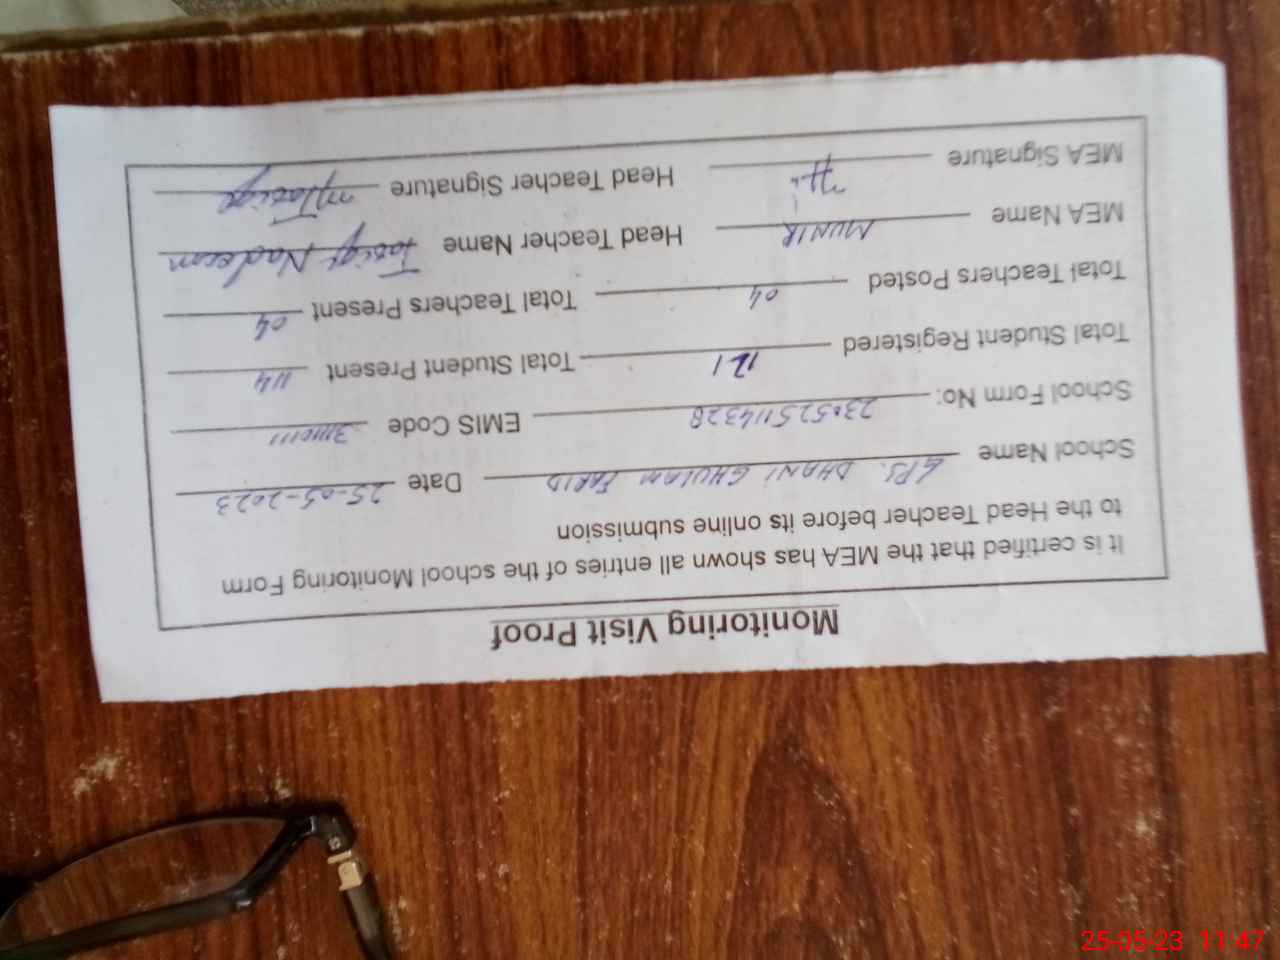 Monitoring Visit Proof
It is certified that the MEA has shown all entries of the school Monitoring Form
to the Head Teacher before its online submission
School Name GPS. DHANI GHULAM FARID Date 25-05-2023
School Form No: 230525114328 EMIS Code
Total Student Registered 121 Total Student Present 114
Total Teachers Posted 04 Total Teachers Present 04
MEA Name MUNIR Head Teacher Name Tariq Nadeem
MEA Signature Head Teacher Signature
25-05-23 11:47